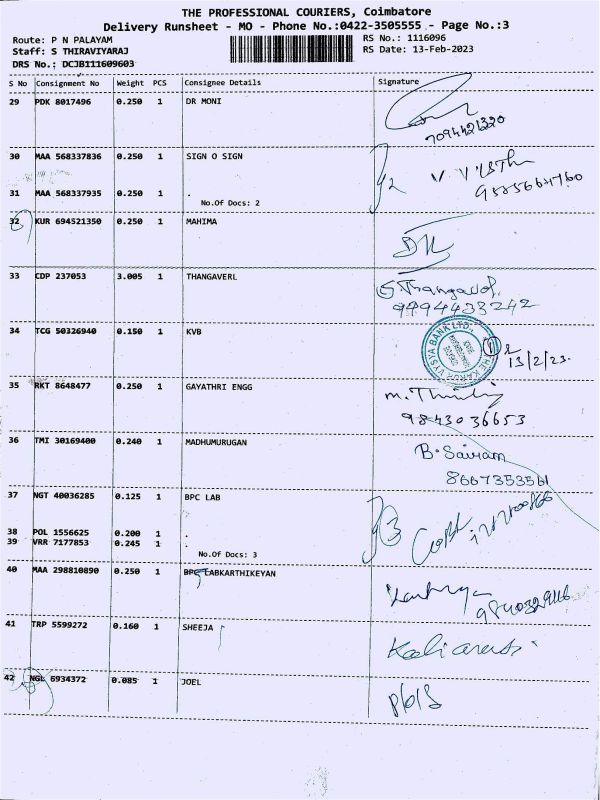 THE PROFESSIONAL COURIERS, Coimbatore
Delivery Runsheet - MO - Phone No.:0422-3505555 - Page No.:3
Route: P N PALAYAM
RS No.: 1116096
Staff: S THIRAVIYARAJ
RS Date: 13-Feb-2023
DRS No.: DCJB111609603
S No Consignment No Weight PCS Consignee Details Signature
29 PDK 8017496 0.250 1 DR MONI
7094421320
30 MAA 568337836 0.250 1 SIGN O SIGN
31 MAA 568337935 0.250 1 .
No.Of Docs: 2
32 KUR 694521350 0.250 1 MAHIMA
33 CDP 237053 3.005 1 THANGAVERL
S.Thangavel
9494433242
34 TCG 50326940 0.150 1 KVB
THE KARUR VYSYA BANK LTD.
13/2/23.
35 RKT 8648477 0.250 1 GAYATHRI ENGG
9843036653
36 TMI 30169400 0.240 1 MADHUMURUGAN
B.Sairam
8667353561
37 NGT 40036285 0.125 1 BPC LAB
38 POL 1556625 0.200 1 .
39 VRR 7177853 0.245 1 .
No.Of Docs: 3
40 MAA 298810890 0.250 1 BPC LABKARTHIKEYAN
9840329116
41 TRP 5599272 0.160 1 SHEEJA
Kaliarasi
42 NGL 6934372 0.085 1 JOEL